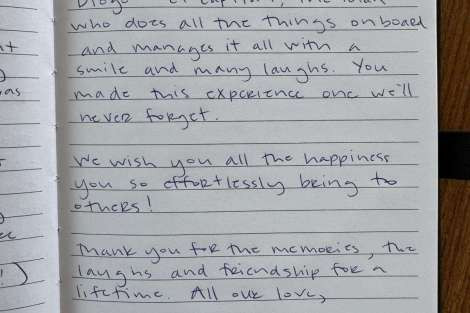 who does all the things onboard
and manages it all with a
smile and many laughs. You
made this experience one we'll
never forget.
We wish you all the happiness
you so effortlessly being to
others!
Thank you for the memories, the
laughs and friendship for a
lifetime. All our love,